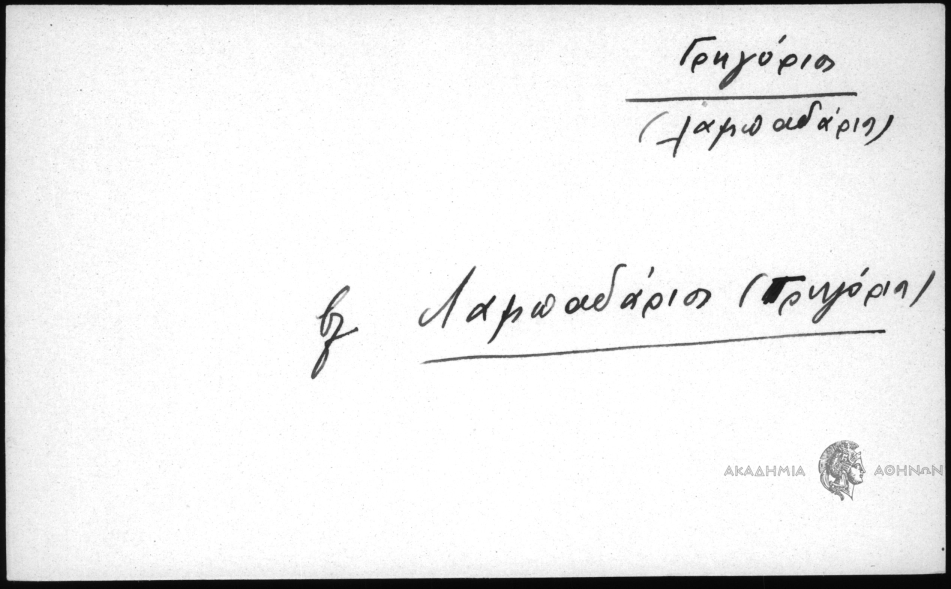 Γρηγόριος
(Λαμπαδάριος)
βλ Λαμπαδάριος (Γρηγόριος)
ΑΚΑΔΗΜΙΑ ΑΘΗΝΩΝ